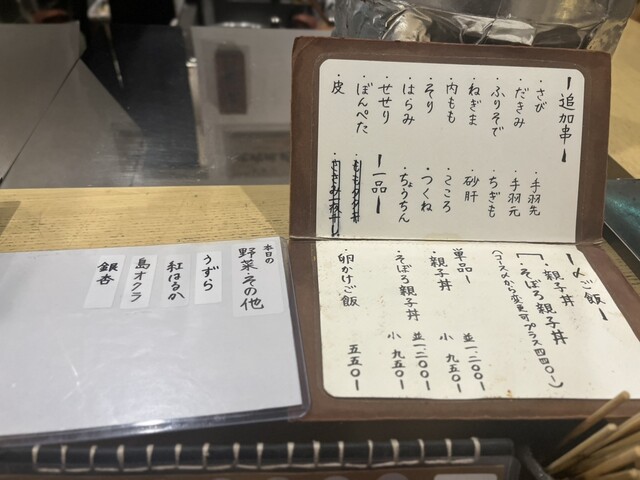 ー追加串ー
・さび
・だきみ
・ふりそで
・ねぎま
・内もも
・そり
・はらみ
・せせり
・ぼんぺた
・皮
・手羽先
・手羽元
・ちぎも
・砂肝
・こころ
・つくね
・ちょうちん
ー一品ー
ー〆ご飯ー
・親子丼
・そぼろ親子丼
(コース〆から変更可プラス四四〇ー)
単品ー
・親子丼 並一.二〇〇ー
小 九五〇ー
・そぼろ親子丼 並一.二〇〇ー
小 九五〇ー
・卵かけご飯 五五〇ー
本日の
野菜・その他
うずら
紅はるか
島オクラ
銀杏